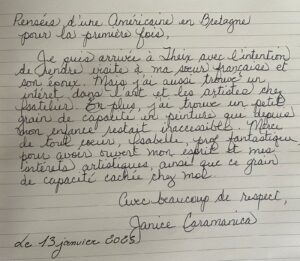 Pensées d'une Américaine en Bretagne
pour la première fois,
Je suis arrivée à Theix avec l'intention
de rendre visite à ma sœur française et
son époux. Mais j'ai aussi trouvé un
intérêt dans l'art et les artistes chez
l'atelier. En plus, j'ai trouvé un petit
grain de capacité en peinture que depuis
mon enfance restait inaccessible. Merci
de tout cœur, Isabelle, prof fantastique
pour avoir ouvert mon esprit et mes
intérêts artistiques, ainsi que ce grain
de capacité cachée chez moi.
Avec beaucoup de respect,
Janice Caramanica
Le 13 janvier 2025